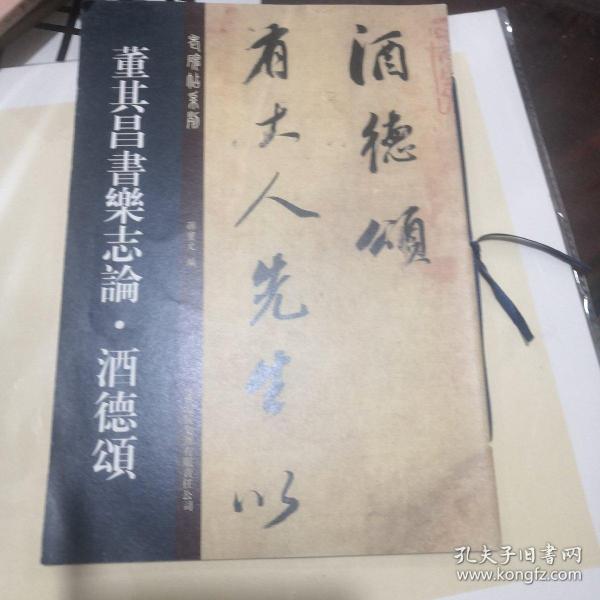 酒德頌
有大人先生以
老碑帖系列
董其昌書樂志論·酒德頌
孔夫子旧书网
www.kongfz.com